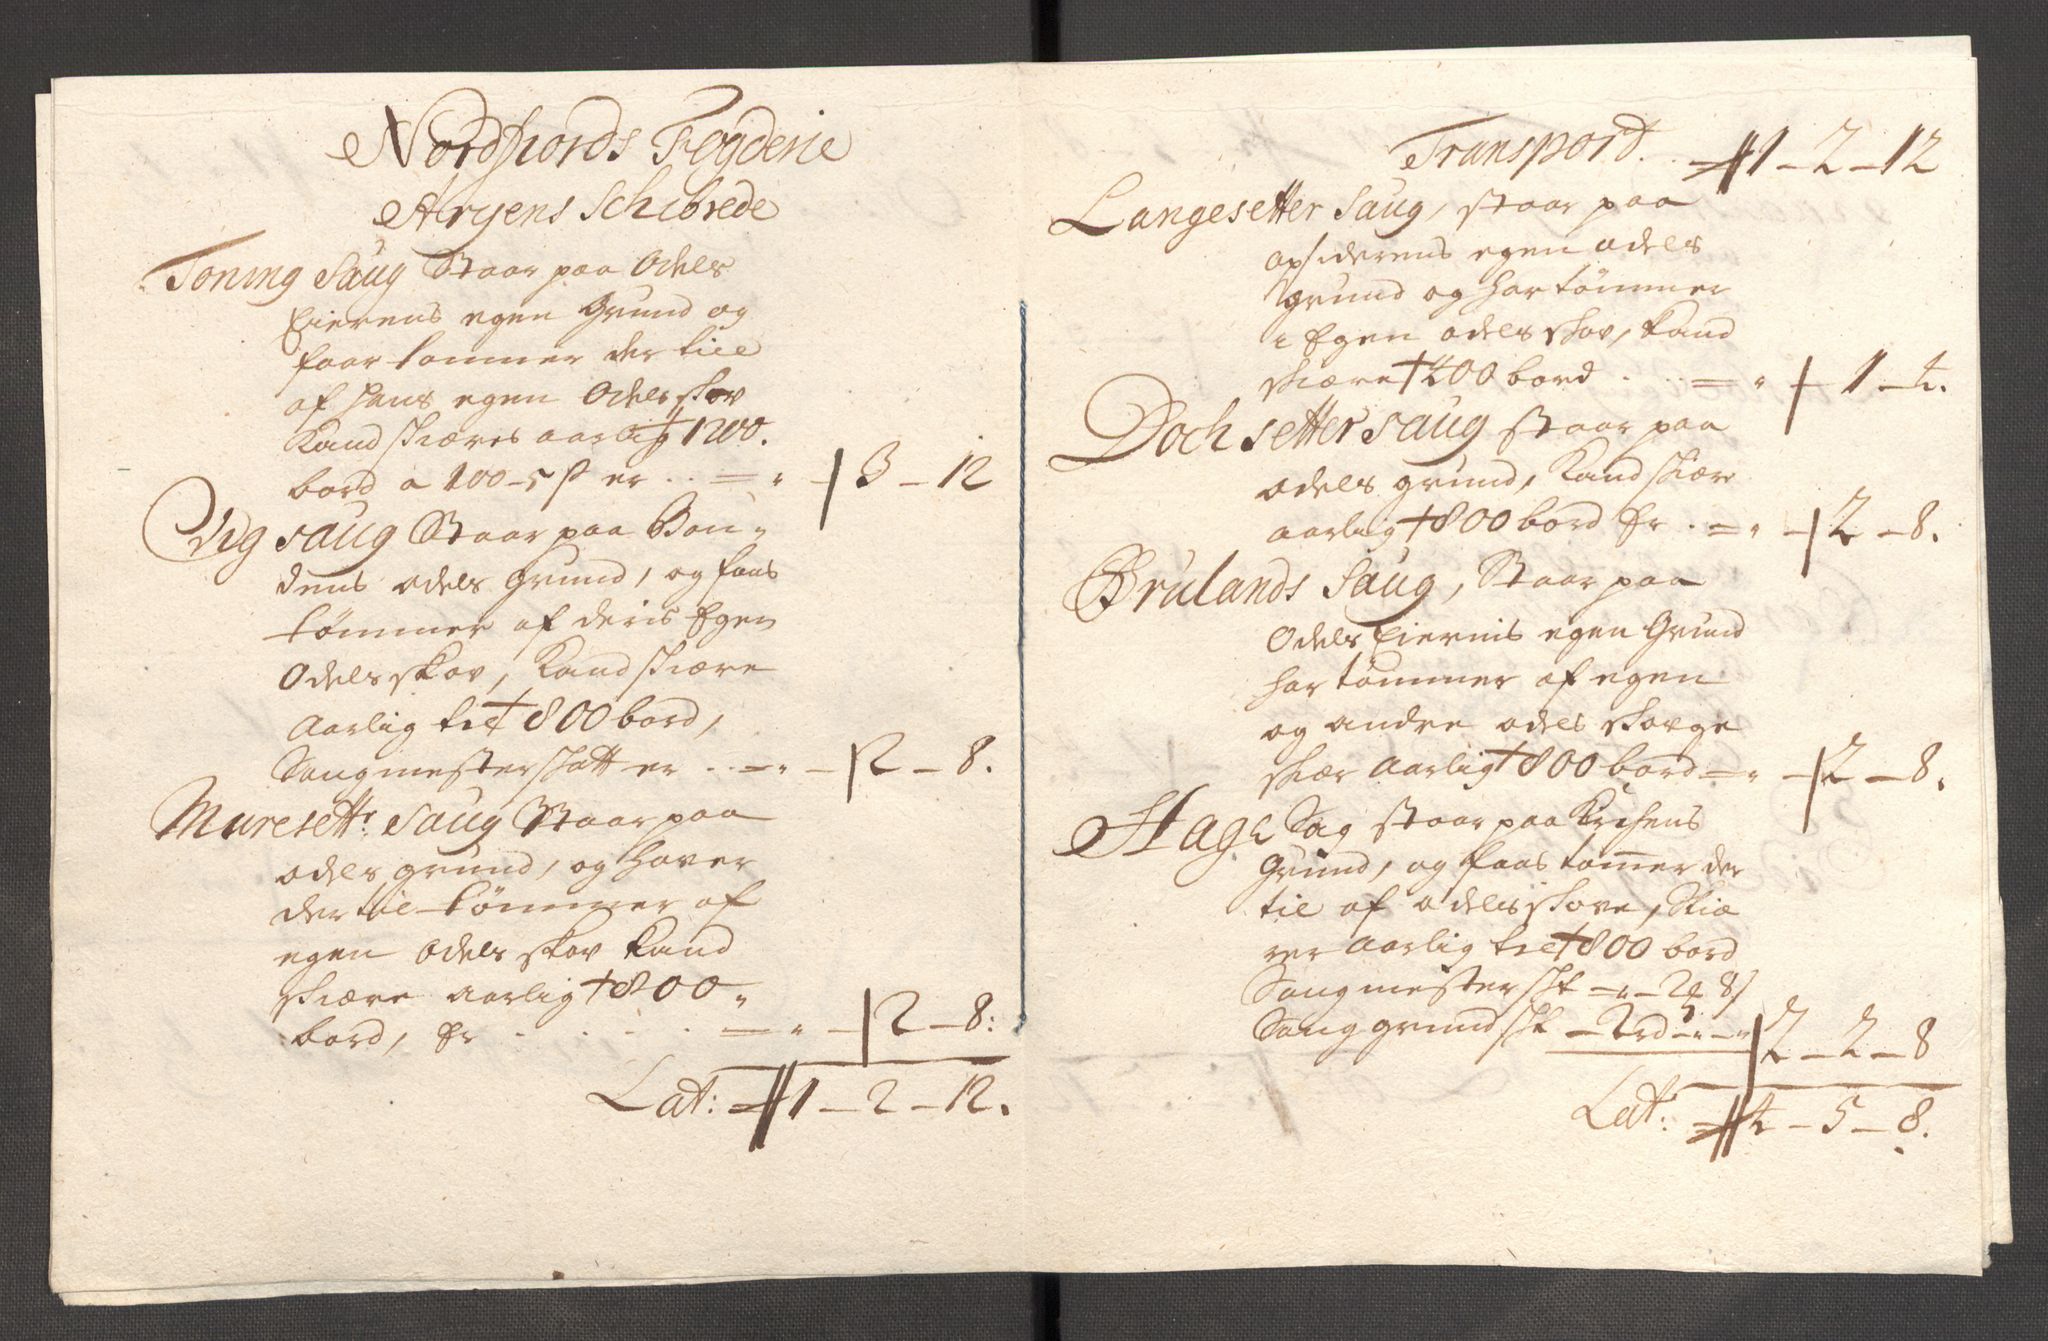 Nordfiords Fogderie
Aryens Schibrede
Toning Saug Staar paa Odels
Eierens egen Grund og
faar tommer der till
af hans egen Odels skov
Kand skiæres aarlig 1200.
bord a 100 - 5 s er .. = " - 3 - 12
Vig saug Staar paa Bon-
dens odels grund, og faas
tømmer af deris Egen
Odels skov, Kand skiære
Aarlig till 800 bord,
Saugmester skatt er .. = " - 2 - 8.
Muresettr: Saug Staar paa
odels grund, og haver
der til tømmer af
egen Odels skov Kand
skiære aarlig 800
bord, Er . . . . = " - 2 - 8:
Lat: 1 - 2 - 12.
Transport. . 1 - 2 - 12
Langesetter Saug, staar paa
opsiderens egen odels
grund og har tømmer
i Egen odels skov, Kand
skiære 400 bord . . . = " - 1 - 4.
Dochsetter saug staar paa
odels grund, Kand skiære
aarlig 800 bord Er . = " - 2 - 8.
Brulands Saug, Staar paa
Odels Eiernis egen Grund
har tømmer af egen
og andre odels skovge
skiær Aarlig 800 bord = " - 2 - 8.
Hage Sag staar paa Kirchens
Grund, og faas tommer der
til af odels skove, Skiæ
rer Aarlig till 800 bord
Saugmester skt = " - 2 8
Saug grund skt - 2 rd - " - " 2 - 2 - 8
Lat: 4 - 5 - 8.